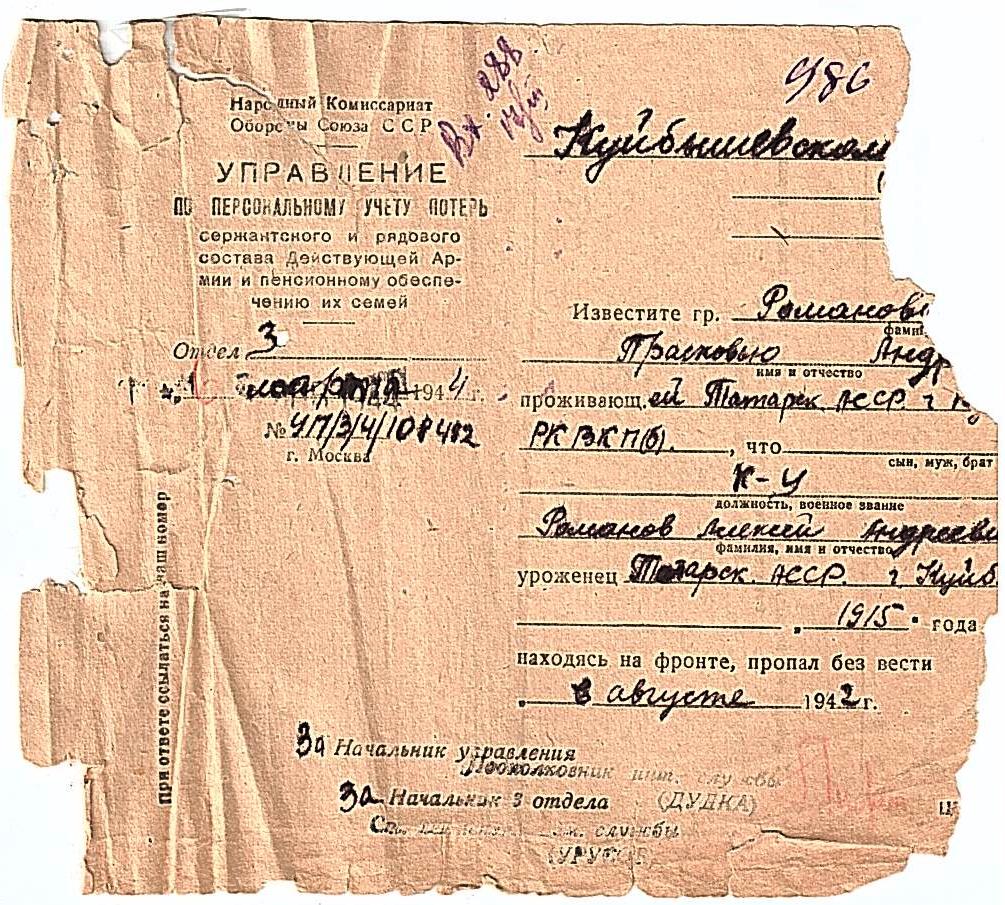 986
Вх. 288
Народный Комиссариат
Обороны Союза ССР
УПРАВЛЕНИЕ
ПО ПЕРСОНАЛЬНОМУ УЧЕТУ ПОТЕРЬ
сержантского и рядового
состава Действующей Ар-
мии и пенсионному обеспе-
чению их семей
Отдел 3
марта 1944 г.
№ УП/3/4/108482
г. Москва
При ответе ссылаться на наш номер
Куйбышевском
Известите гр. Романов
фами
Прасковью Анд
имя и отчество
проживающ. ей Татарск. АССР. г
РК ВКП(б). , что
сын, муж, брат
К-у
должность, военное звание
Романов Алексей Андрееви
фамилия, имя и отчество
уроженец Татарск. АССР. г Куйб
1915 года
находясь на фронте, пропал без вести
в августе 1942 г.
За Начальник управления
Подполковник инт. службы
За Начальник 3 отдела (ДУДКА)
Ст. службы